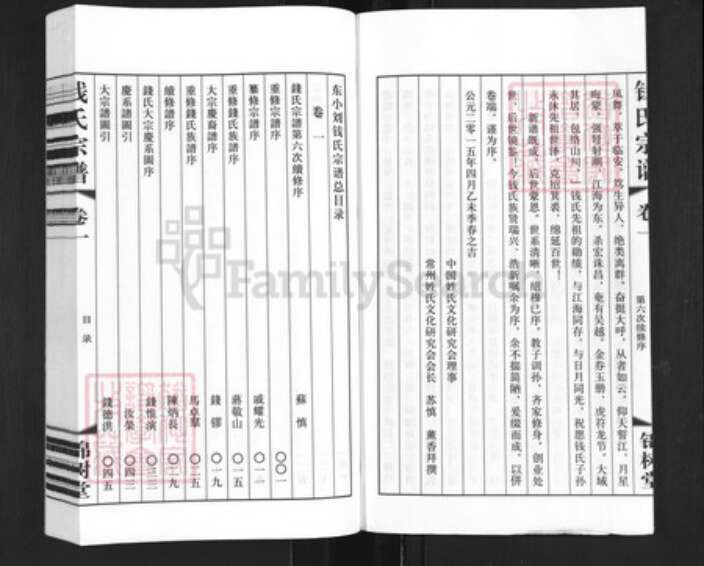 钱氏宗谱
卷一
第六次续修序
锦树堂
凤舞，萃于临安，笃生异人，绝类离群，奋挺大呼，从者如云，仰天誓江，月星
晦蒙，强弩射潮，江海为东，杀宏诛昌，奄有吴越，金券玉册，虎符龙节，大城
其居，包络山川，钱氏先祖的勋绩，与江海同存，与日月同光，祝愿钱氏子孙
永沐先祖世泽，克绍箕裘，绵延百世！
新谱既成，后世蒙恩，世系清晰，昭穆已序，教子训孙，齐家修身，创业处
世，后世镜鉴！今钱氏族贤瑞兴、浩新嘱余为序，余不揣简陋，爰缀而成，以併
卷端，谨为序。
公元二零一五年四月乙未季春之吉
中国姓氏文化研究会理事
常州姓氏文化研究会会长 苏慎 薰香拜撰
东小刘钱氏宗谱总目录
卷一
錢氏宗譜第六次續修序 蘇慎 〇〇一
重修宗譜序 戚耀光 〇一一
纂修宗譜序 蔣敬山 〇一五
重修錢氏族譜序 錢鏐 〇一九
大宗慶裔譜序 馬卓羣 〇二五
重修錢氏族譜序 陳炳長 〇二九
續修譜序 錢惟演 〇三三
錢氏大宗慶系圖序 汝榮 〇四三
慶系譜圖引 錢德洪 〇四五
大宗譜圖引
钱氏宗谱
卷一
目录
锦树堂
FamilySearch